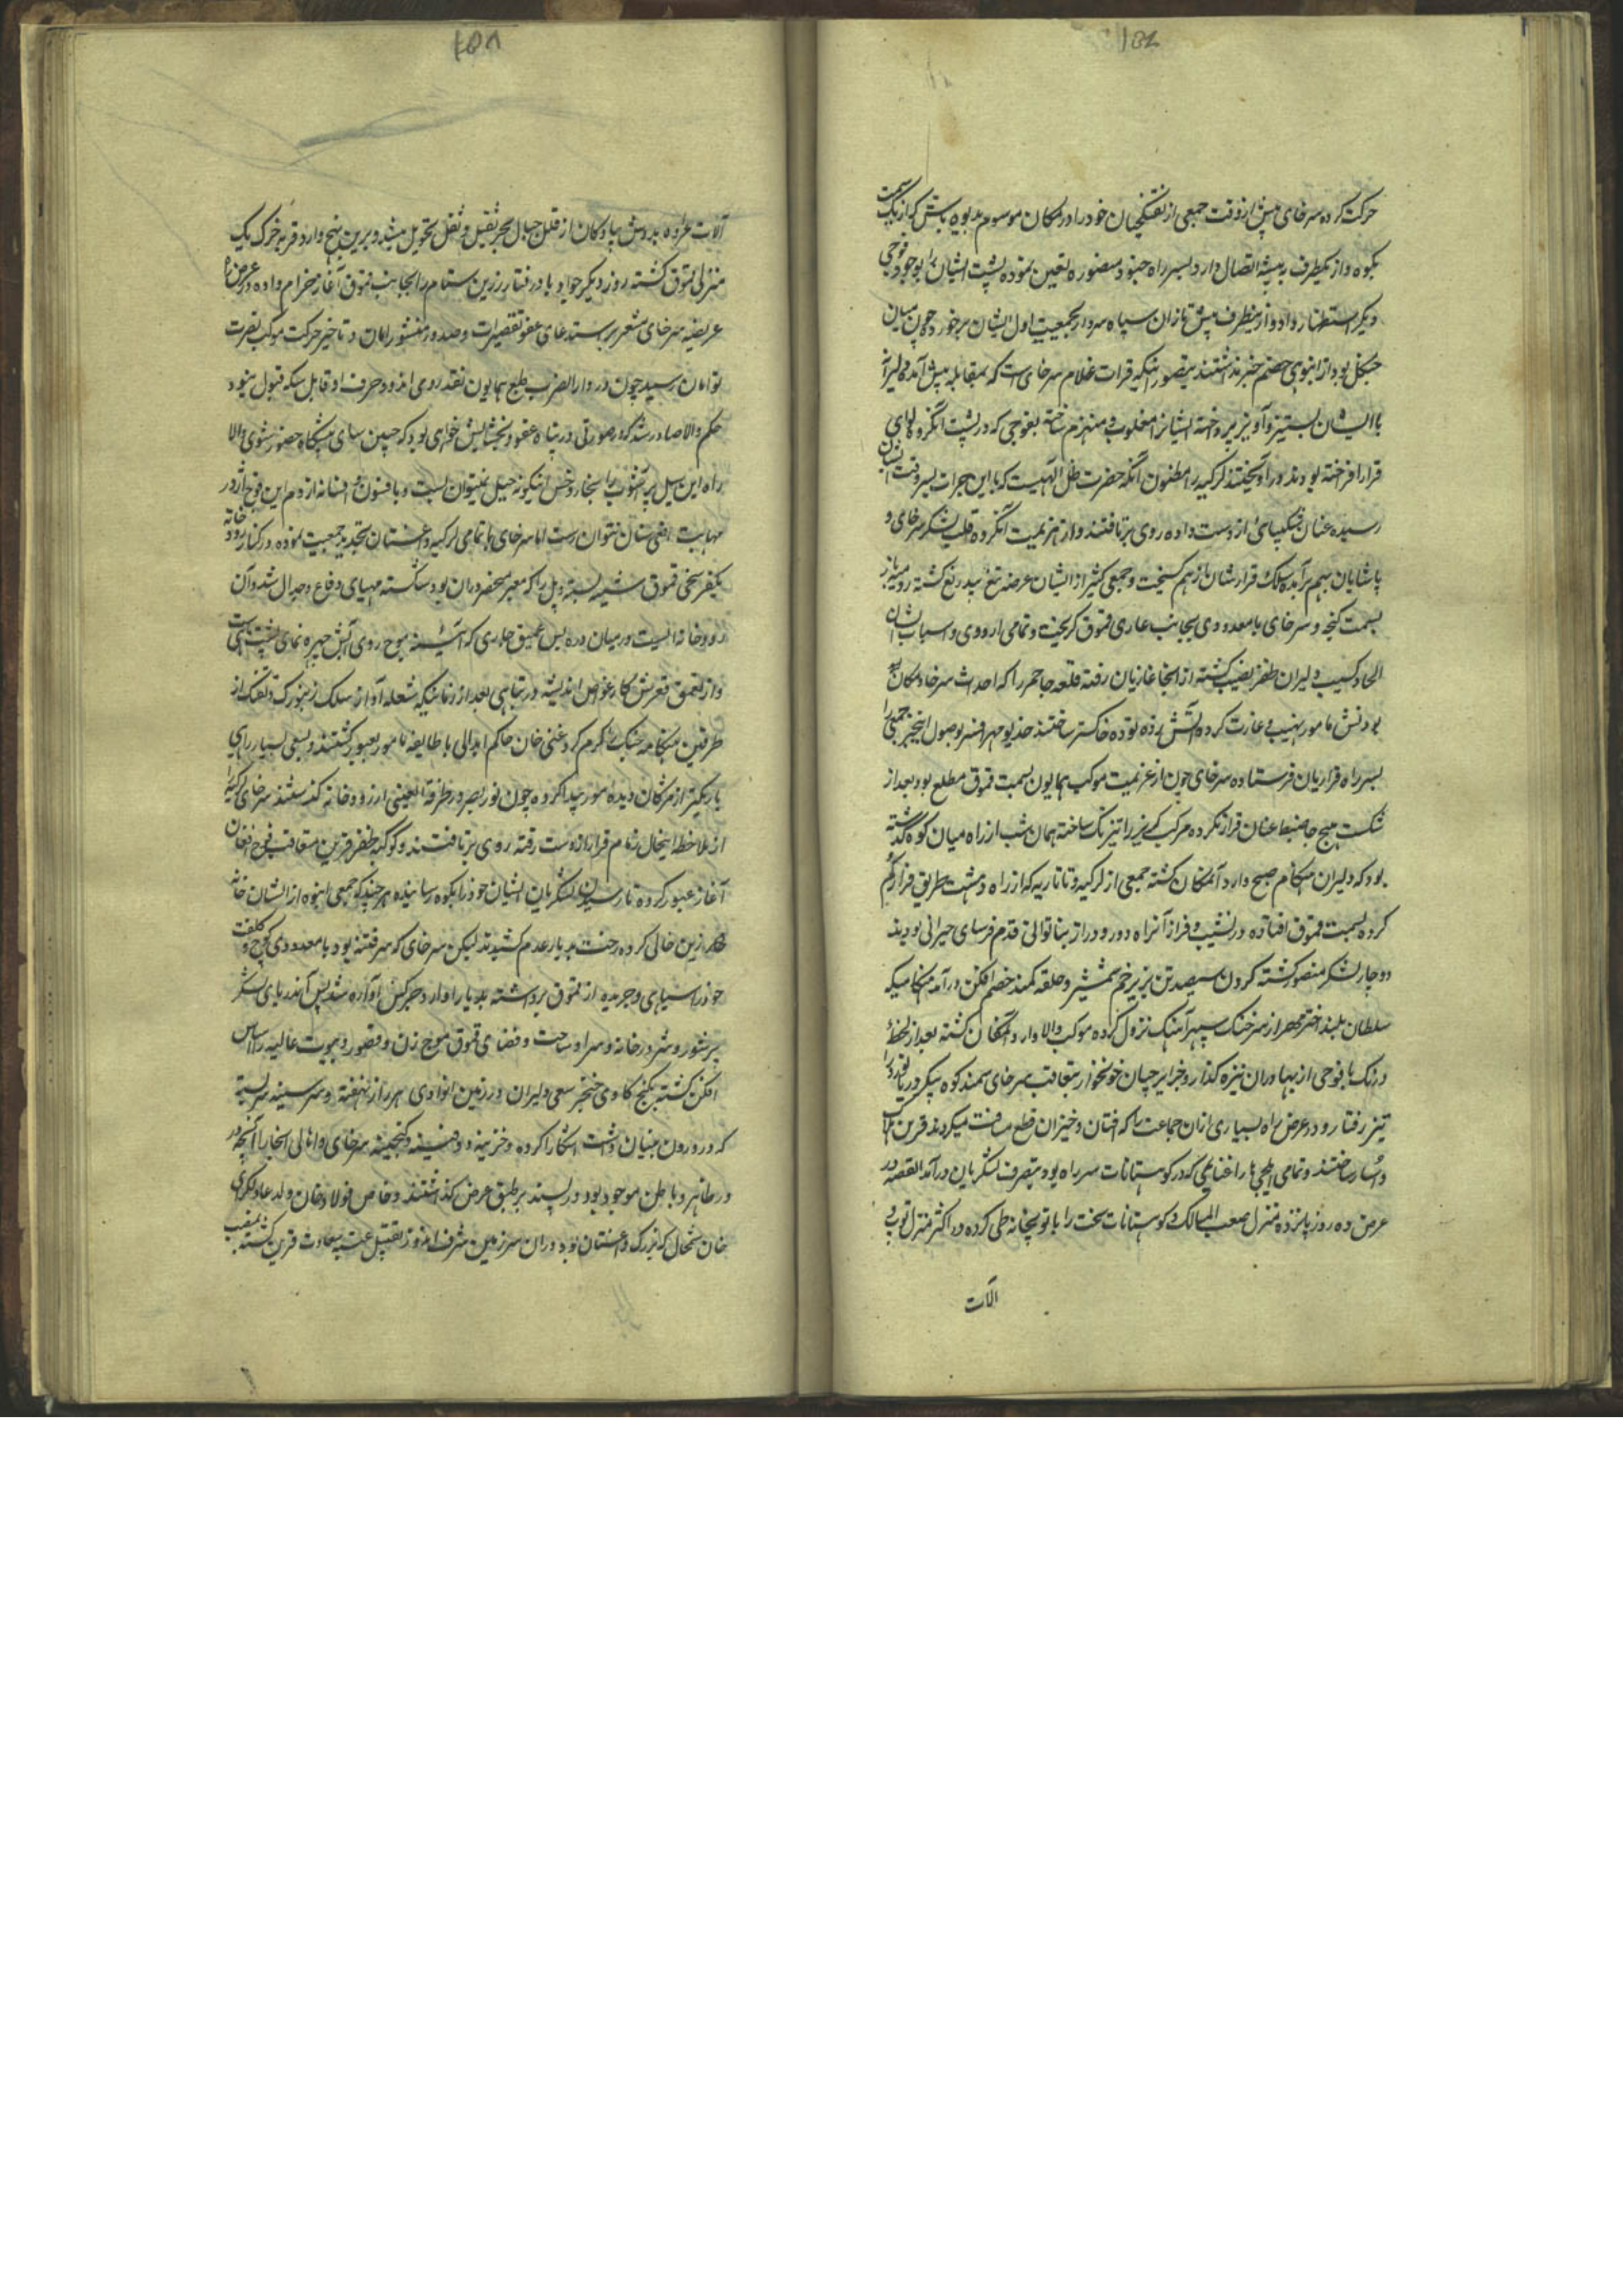 ۱۵۷
حرکت کرده سرخای پیش از وقت جمعی از تفنگچیان خود را در مکان موسوم بدیوه باتن که از یک سمت
بکوه و از یکطرف به بیشه اتصال دارد بسر راه جنود منصوره تعین نموده پشت ایشان را بوجود فوجی
دیگر استظهار داد و از ینطرف پیش تازان سپاه سردار بجمعیت اول ایشان برخورد چون میان
جنگل بود از انبوهی خصم خبر نداشتند بتصور اینکه قرات غلام سرخای است که بمقابله پیش آمده دلیرانه
با ایشان بستیز و آویز پرداخته ایشانرا مغلوب و منهزم ساخته بفوجی که در پشت آنگروه لوای
قرار افراخته بودند در آویختند لزکیه را مظنون آنکه حضرت ظل الهیست که باین جرات بسر وقت ایشان
رسیده عنان شکیبائی از دست داده روی بر تافتند و از هزیمت آنگروه قلب لشکر سرخای و
پاشایان بهم برآمده سلک قرارشان از هم گسیخت و جمعی کثیر از ایشان عرضه تیغ بیدریغ گشته رومیه باز
بسمت گنجه و سرخای با معدودی بجانب غازی قموق گریخت و تمامی اردوی و اسباب ایشان
الجا و کسیب دلیران ظفر نصیب گشته از آنجا غازیان رفته قلعه خاچمز را که احداث سرخا و مکان
بودنش مامور بنهیب و غارت کرده آتش زده توده خاکستر ساختند خدیو مهر افسر بوصول اینخبر جمعی را
بسر راه فراریان فرستاده سرخای چون از عزیمت موکب همایون بسمت قموق مطلع بود بعد از
شکست هیچ جا ضبط عنان قرار نکرده مرکب گریز را تیز تک ساخته همان شب از راه میان کوه گذشته
بود که دلیران هنگام صبح وارد آنمکان گشته جمعی از لزکیه و تاتاریه که از راه دهشت طریق فرار گم
کرده بسمت قموق افتاده در نشیب و فراز آنراه دور و دراز بناتوانی قدم فرسای حیرانی بودند
دوچار لشکر منصور گشته گردن سیصد تن بزیر خم شمشیر و حلقه کمند خصم افکن در آمد هنگامیکه
سلطان بلند اختر مهر از سرخنک سپهر آهنگ نزول کرده موکب والا وارد آنمکان گشته بعد از لحظه
درنگ با فوجی از بهادران نیزه گذار و جزایرچیان خونخوار بتعاقب سرخای سمند کوه پیکر دریا نورد را
تیز رفتار و در عرض راه بسیاری از ان جماعت را که افتان و خیزان قطع مسافت میکردند قرین هلاک
و اسار ساختند و تمامی ایلجی ها را غنایمی که در کوهستانات سر راه بود بتصرف لشکریان در آمد القصه در
عرض ده روز پانزده منزل صعب المسالک و کوهستانات سخت را با توپخانه طی کرده در اکثر منزل توپ و
آلات
۱۵۸
آلات عراده بدوش پیادگان از قلل جبال بجر ثقیل و ثقل تحویل میشد و برین نهج وارد قریه خزک یک
منزلی قموق گشته روز دیگر جواد باد رفتار زرین ستام را بجانب قموق آغاز خرام داده در عرض راه
عریضه سرخای مشعر بر استدعای عفو تقصیرات و صدور منشور امان و تاخیر حرکت موکب نصرت
توامان رسید چون در دارالضرب طبع همایون نقد روی اندود حرف او قابل سکه قبول نبود
حکم والا صادر شد که در صورتی در پناه عفو و بخشایش خواهی بود که جبین سای پیشگاه حضور شوی والا
راه این سیل پر آشوب را بخار و خس اینگونه حیل نمیتوان بست و بافسون و افسانه از دم این فوج اژدر
مهابت افعی سنان نتوان رست اما سرخای با تمامی لزکیه داغستان تجدید جمعیت نموده در کنار رودخانه
یکفرسخی قموق سنبه بسته و پل را که معبر منحصر دران بود شکسته مهیای دفاع و جدال شد و آن
رودخانه ایست در میان دره بس عمیق جاری که آئینه موج روی آبش چهره نمای پشت ماهیست
و از تعمق قعرش کار غواص اندیشه در تباهی بعد از زمانیکه شعله آواز سلک زنبورک و تفنک از
طرفین هنگامه جنک را گرم کرد غنی خان حاکم ابدالی با طایفه مامور بعبور گشتند و بسعی بسیار راهی
باریکتر از مژگان دیده مور پیدا کرده چون نور بصر در طرفة العینی از رودخانه گذشتند سرخای و لزکیه را
از ملاحظه اینحال زمام قرار از دست رفته روی بر تافتند و کوکبه ظفر قرین متعاقب فوج افغان
آغاز عبور کرده تا رسیدن لشکریان ایشان خود را بکوه رسانیده هر چند که جمعی انبوه از ایشان خانه
زین خالی کرده رخت بدیار عدم کشیدند لیکن سرخای که سر فتنه بود با معدودی کوچ و کلفت
خود را سیاهی و جریده از قموق برداشته بدیار آوار و چرکس آواره شد پس آندریای لشکر
پر شور و شر در خانه و سرا و ساحت و فضای قموق موج زن و قصور و بیوت عالیه را اساس
افکن گشته بگنج کاوی خنجر سعی دلیران در زمین انوادی هر راز نهفته و سر سینه سر بسته
که در درون بنیان داشت آشکارا کرده و خزینه و دفینه و گنجینه سرخای و اهالی آنجا را آنچه در
در ظاهر و باطن موجود بود در پسند بر طبق عرض گذاشتند و خاص فولاد خان ولد عادلگرای
خان شمخال که بزرک داغستان بود دران سرزمین شرف اندوز تقبیل عتبه سعادت قرین گشته بمنصب